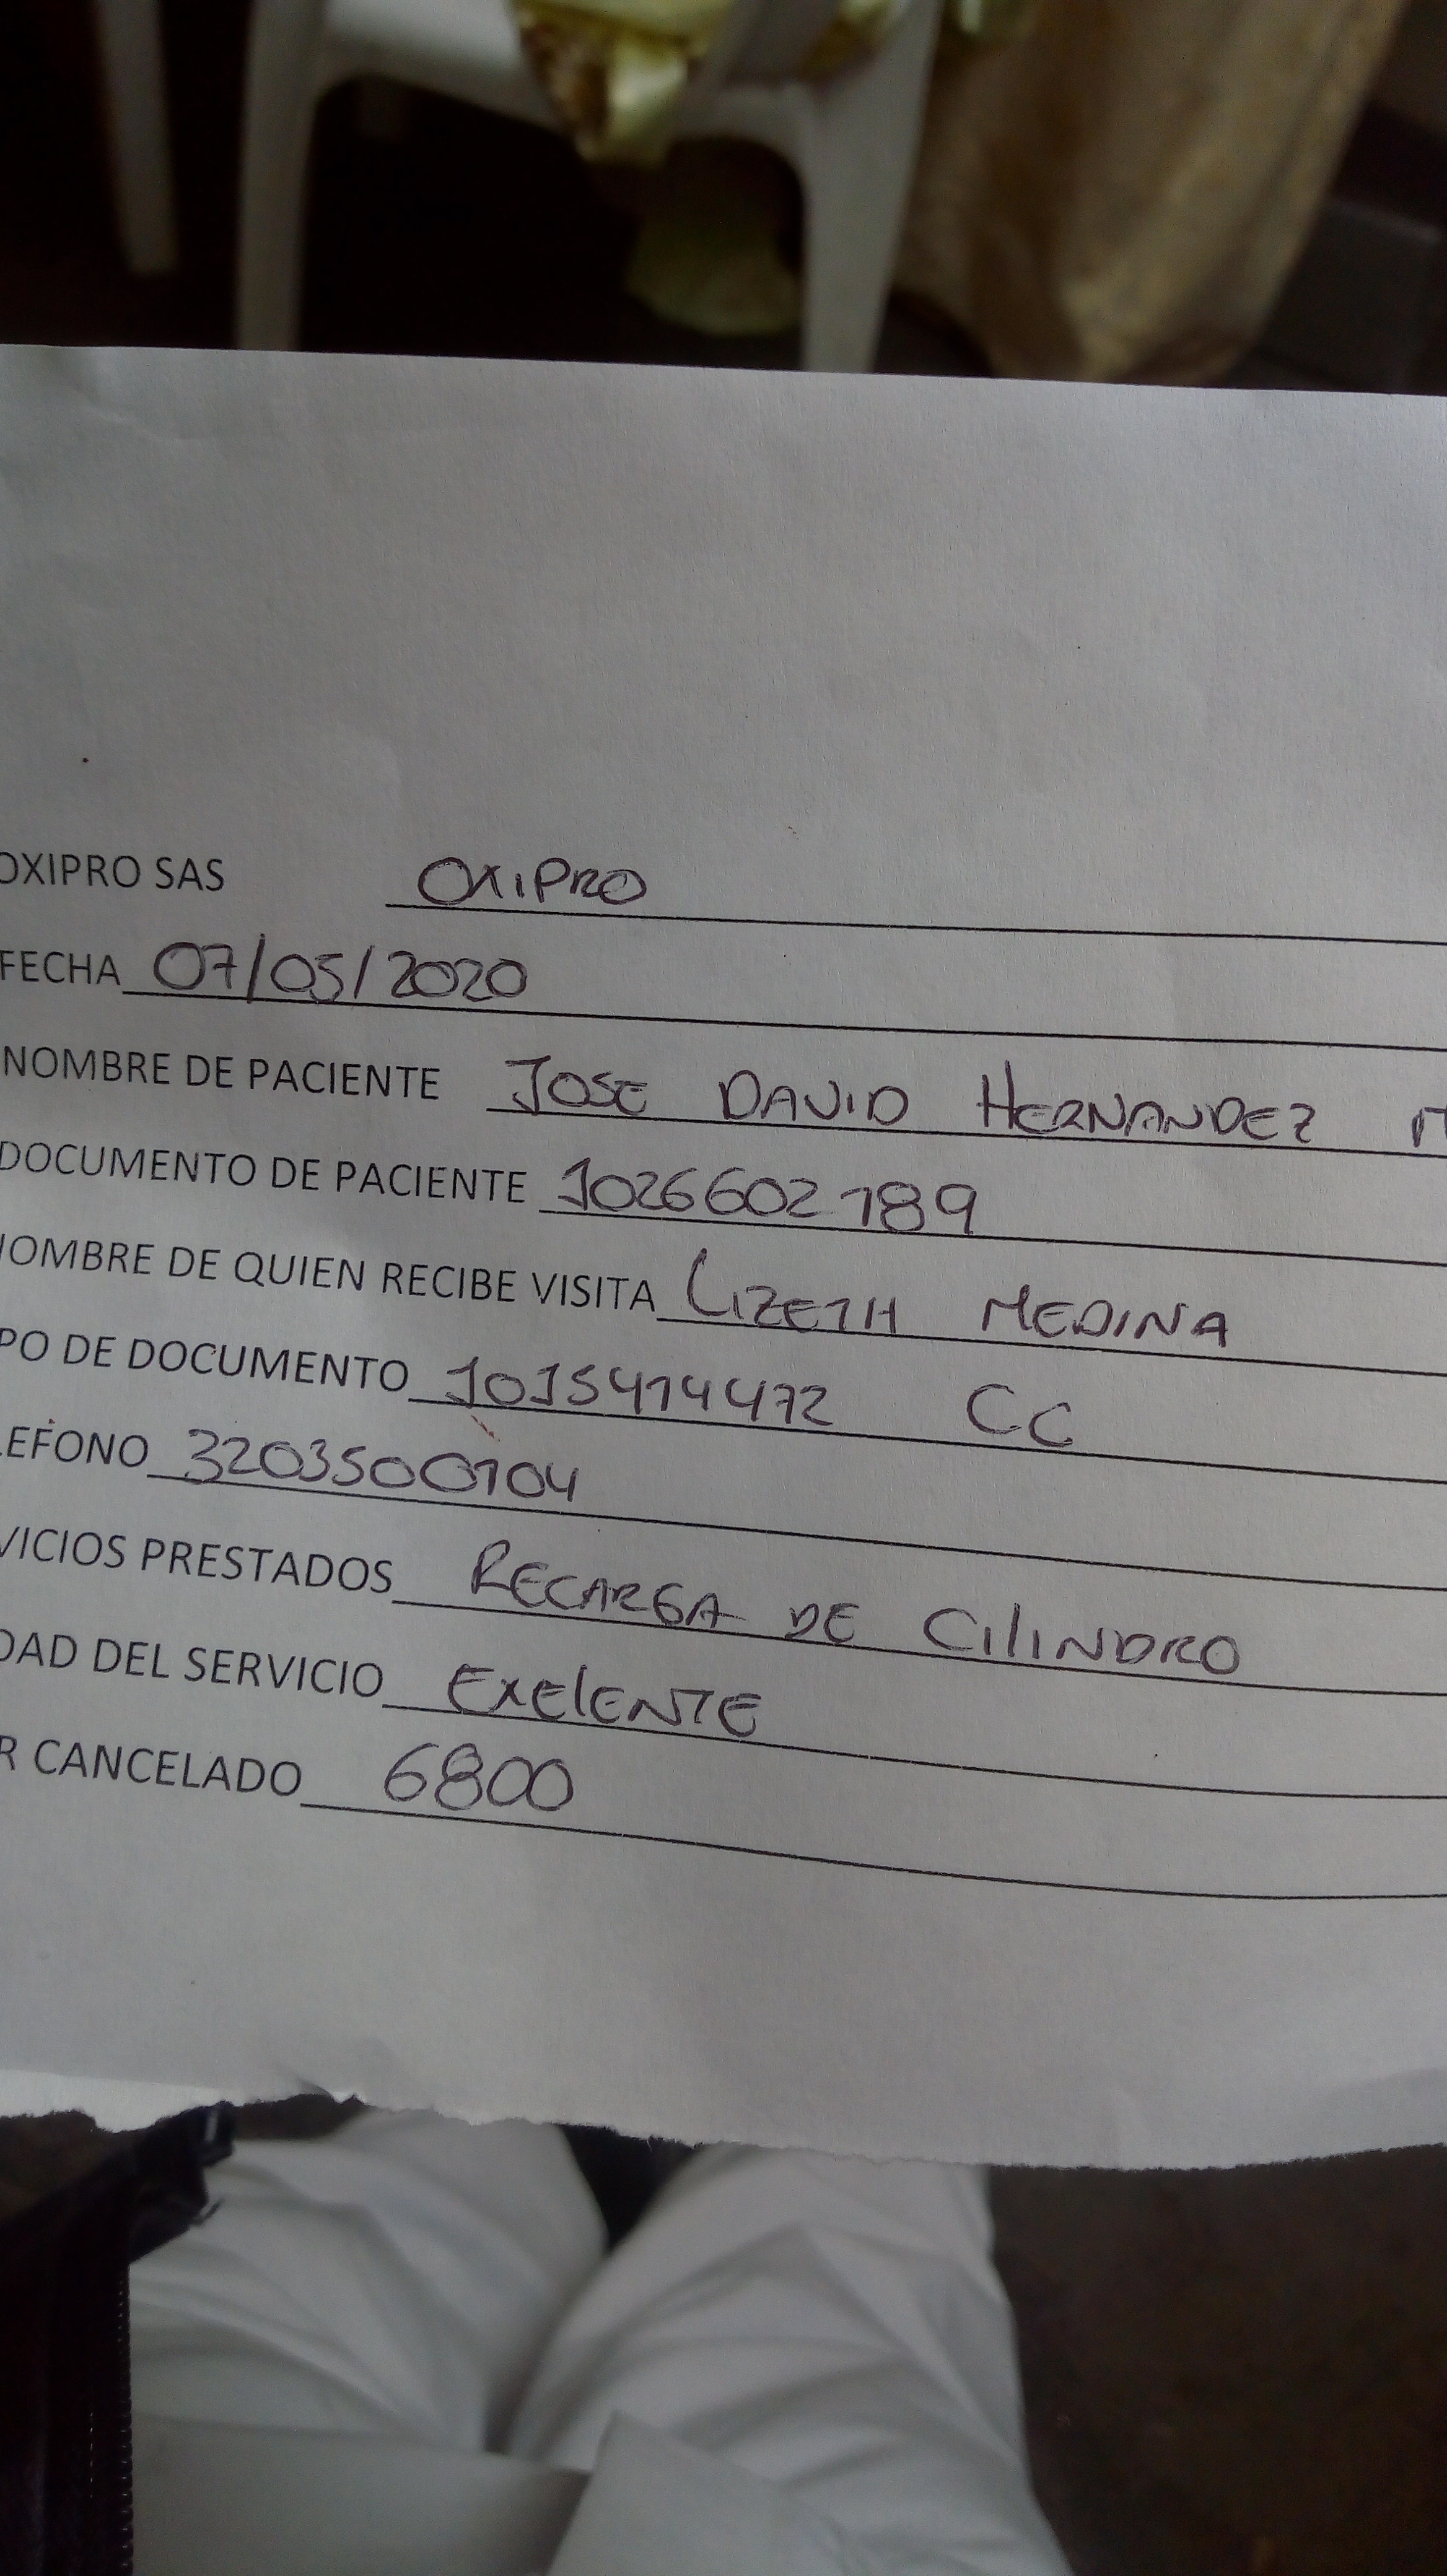 OXIPRO SAS OXIPRO
FECHA 07/05/2020
NOMBRE DE PACIENTE JOSE DAVID HERNANDEZ
DOCUMENTO DE PACIENTE 1026602189
NOMBRE DE QUIEN RECIBE VISITA LIZETH MEDINA
PO DE DOCUMENTO 1015414472 CC
EFONO 3203500104
VICIOS PRESTADOS RECARGA DE CILINDRO
DAD DEL SERVICIO EXELENTE
R CANCELADO 6800